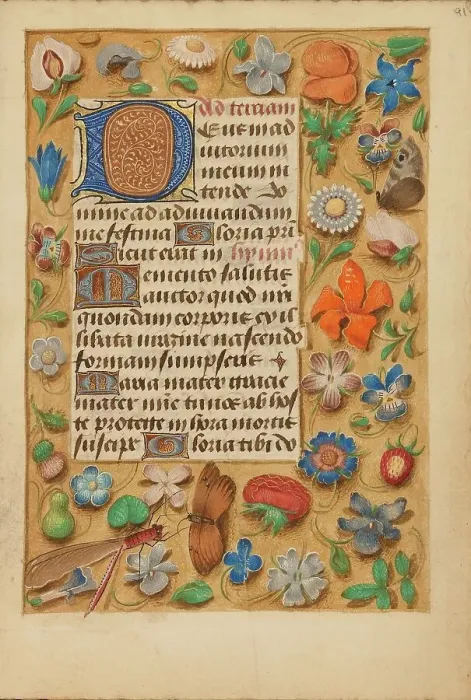 91
Ad terciam
Deus in ad
iutorium
meum in
tende Do
mine ad adiuuandum
me festina Gloria pri
Sicut erat in hymnus
Memento salutis
auctor quod nri
quondam corporis ex il
libata uirgine nascendo
formam sumpseris
Maria mater gracie
mater mie tu nos ab hos
te protette in hora mortis
suscipe Gloria tibi do